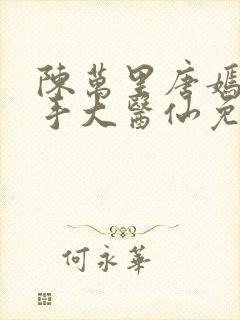 陳萬里唐嫣
手大醫仙免
何永華